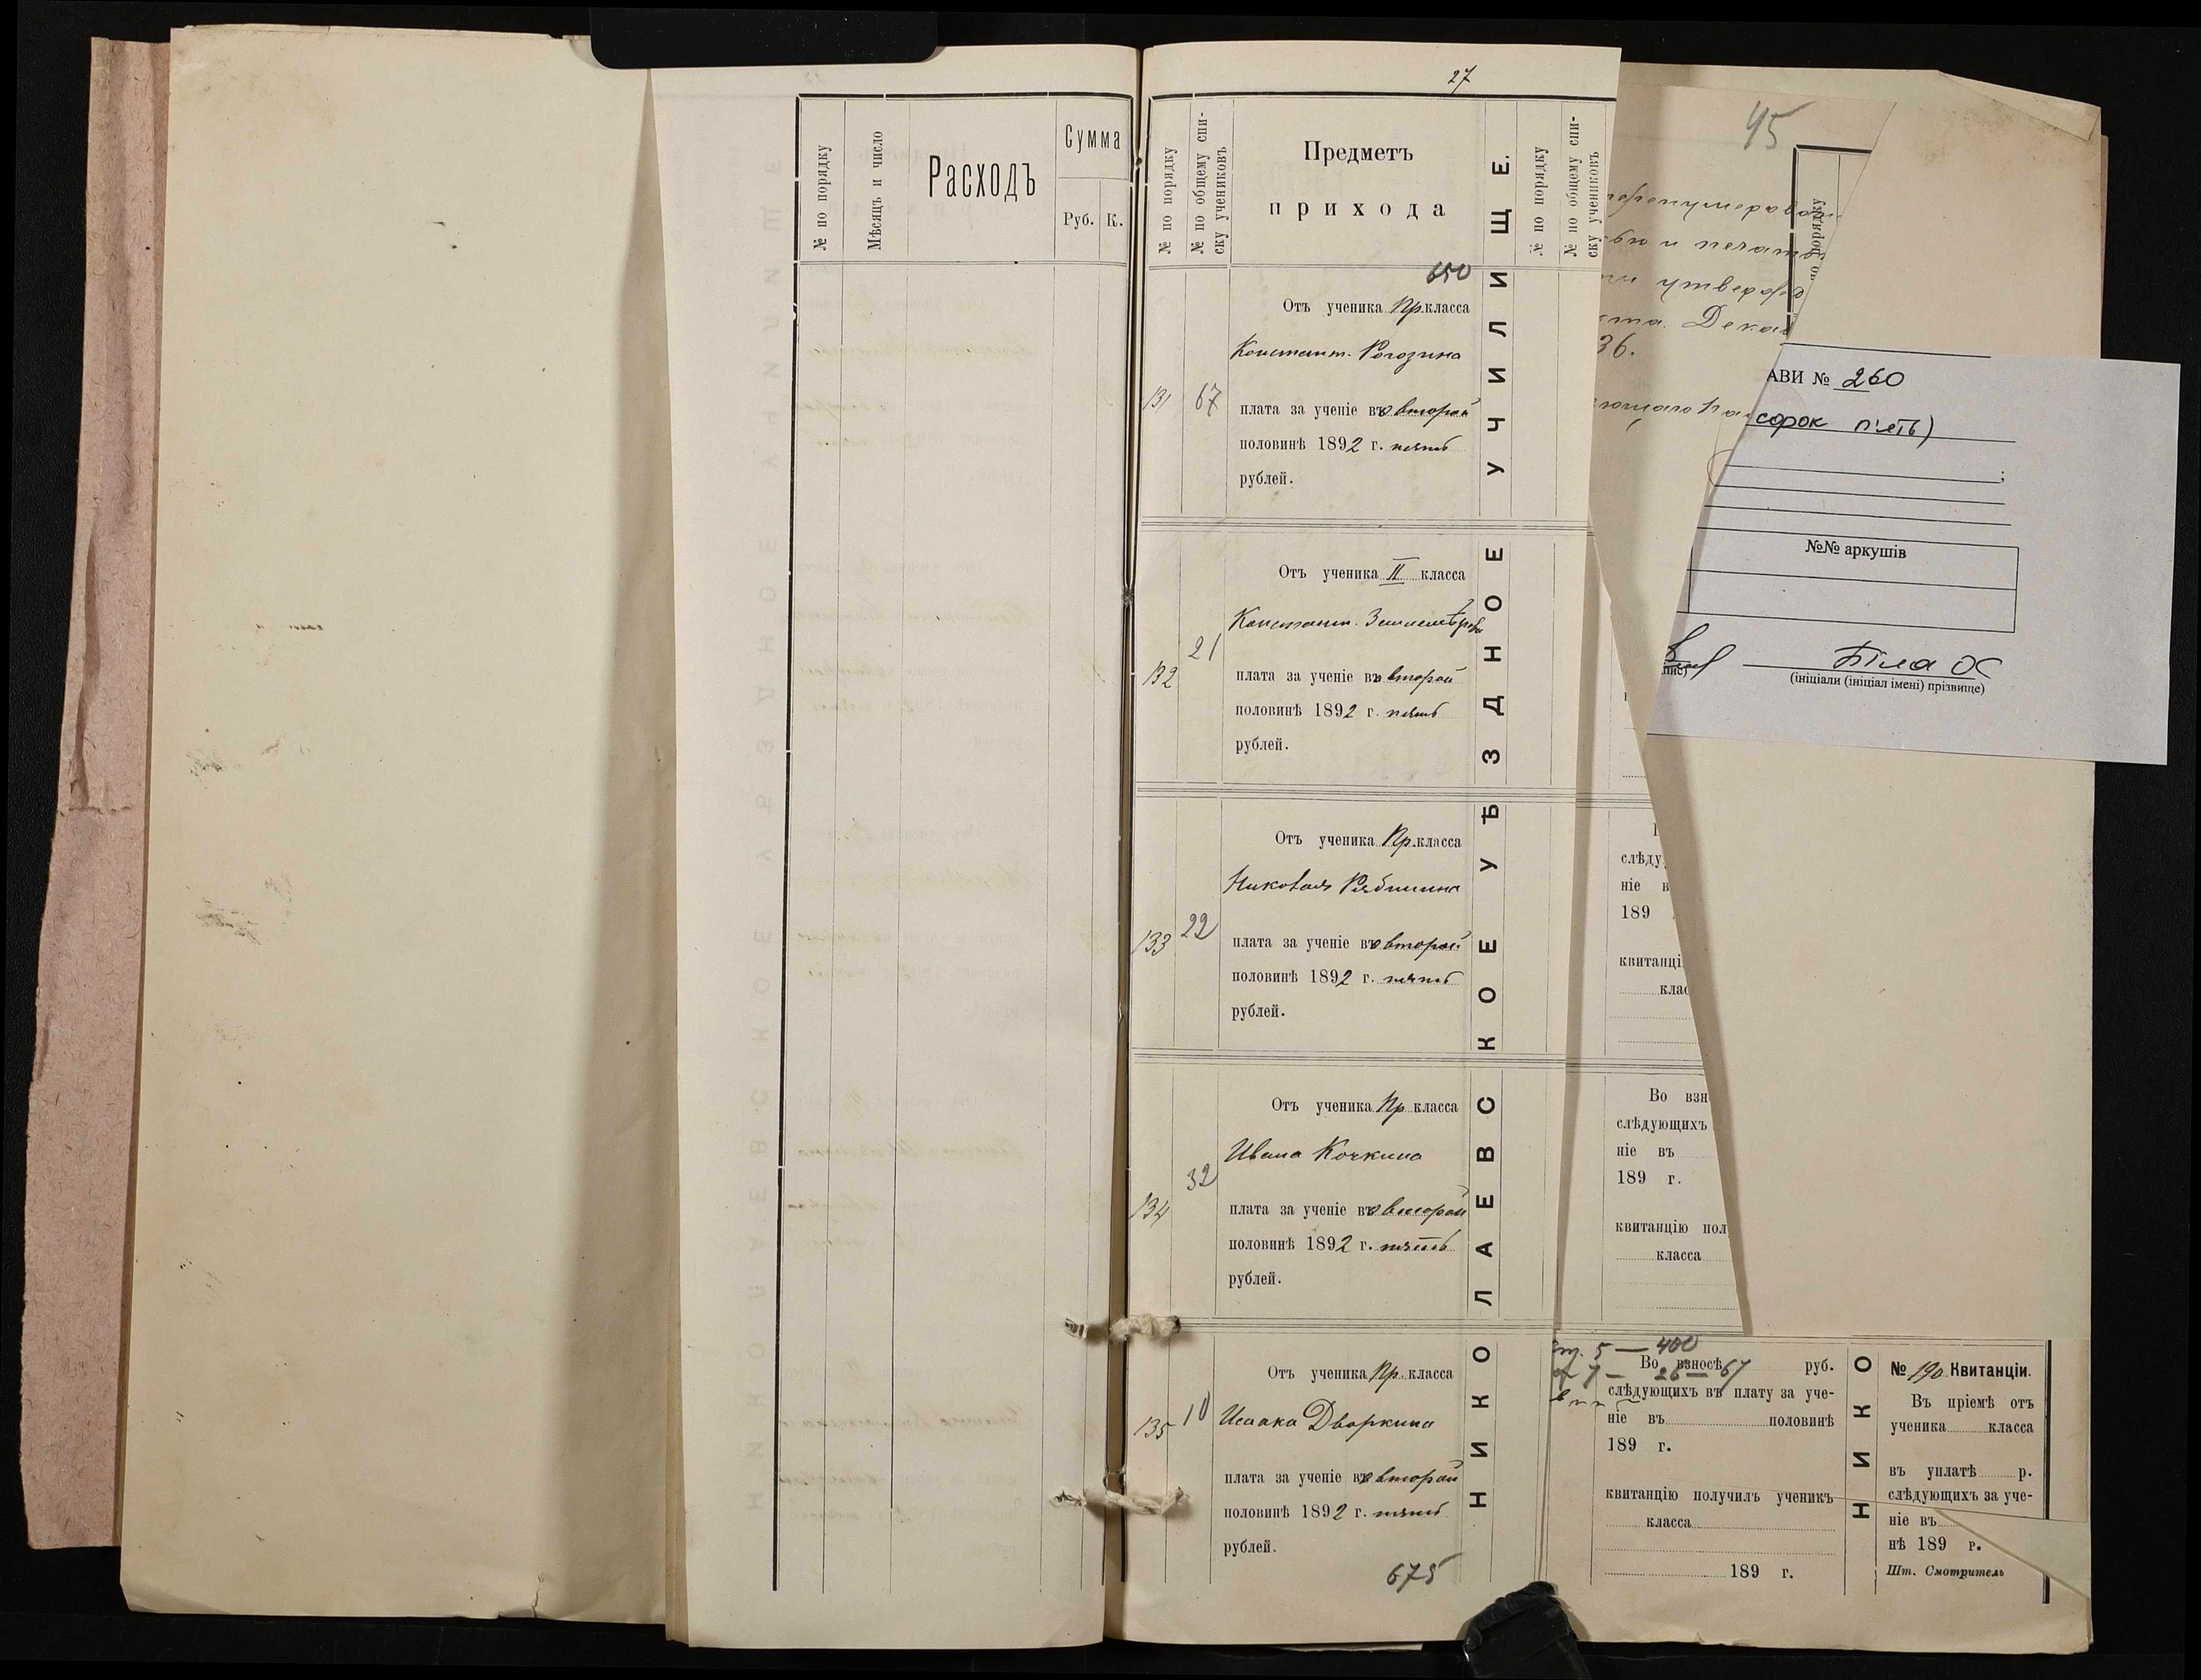 № по порядку
Мѣсяцъ и число
Расходъ
Сумма
Руб. К.
27
№ по порядку
№ по общему спи-
ску учениковъ
Предметъ
прихода
№ по порядку
№ по общему спи-
ску учениковъ
НИКОЛАЕВСКОЕ УѢЗДНОЕ УЧИЛИЩЕ.
650
Отъ ученика Пр. класса
Констант. Рогозина
131 67
плата за ученіе во второй
половинѣ 1892 г. пять
рублей.
Отъ ученика II класса
Констант. Землемѣрова
132 21
плата за ученіе во второй
половинѣ 1892 г. пять
рублей.
Отъ ученика Пр. класса
Николая Рябинина
133 22
плата за ученіе во второй
половинѣ 1892 г. пять
рублей.
Отъ ученика Пр. класса
Ивана Кочкина
134 32
плата за ученіе во второй
половинѣ 1892 г. пять
рублей.
Отъ ученика Пр. класса
Исаака Дворкина
135 10
плата за ученіе во второй
половинѣ 1892 г. пять
рублей.
675
45
по порядку
36.
АВИ № 260
сорок п'ять)
;
№№ аркушів
Біла ОС
(ініціали (ініціал імені) прізвище)
слѣду
ніе в
189
квитанці
клас
Во взн
слѣдующихъ
ніе въ
189 г.
квитанцію пол
класса
5 — 400
7 — 26 — 67
Во взносѣ руб.
слѣдующихъ въ плату за уче-
ніе въ половинѣ
189 г.
квитанцію получилъ ученикъ
класса
189 г.
НИКО
№ 190 Квитанціи.
Въ пріемѣ отъ
ученика класса
въ уплатѣ р.
слѣдующихъ за уче-
ніе въ
нѣ 189 г.
Шт. Смотритель